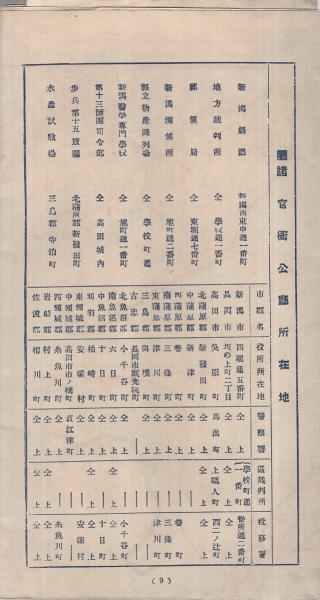 諸官衙公廳所在地
新潟縣廳 新潟市東中通一番町
地方裁判所 仝 學校町通一番町
郵便局 仝 東堀通七番町
新潟測候所 仝 旭町通二番町
縣立物產陳列場 仝 學校町通
新潟醫學專門學校 仝 旭町通一番町
第十三師團司令部 仝 高田城內
步兵第十五旅團 北蒲原郡新發田町
水產試驗場 三島郡寺泊町
市郡名 役所所在地 警察署 區裁判所 稅務署
新潟市 西堀通五番町 仝上 學校町通一番町 營所通二番町
長岡市 坂の上町二丁目 仝上 仝上 仝上
高田市 吳服町 馬出町 上職人町 西二ノ辻町
北蒲原郡 新發田町 仝上 仝上 仝上
中蒲原郡 新津町 仝上
西蒲原郡 卷町 仝上 卷町
南蒲原郡 三條町 仝上 三條町
東蒲原郡 津川町 仝上 津川町
三島郡 與板町 仝上
古志郡 長岡市觀光院町
北魚沼郡 小千谷町 仝上 小千谷町
南魚沼郡 六日町 仝上 仝上
中魚沼郡 十日町 仝上 十日町
刈羽郡 柏崎町 仝上 仝上 仝上
東頸城郡 安塚村 仝上 安塚村
中頸城郡 高田市 直江津町
西頸城郡 糸魚川町 仝上 糸魚川町
岩船郡 村上町 仝上 仝上 仝上
佐渡郡 相川町 仝上 仝上 仝上
(9)